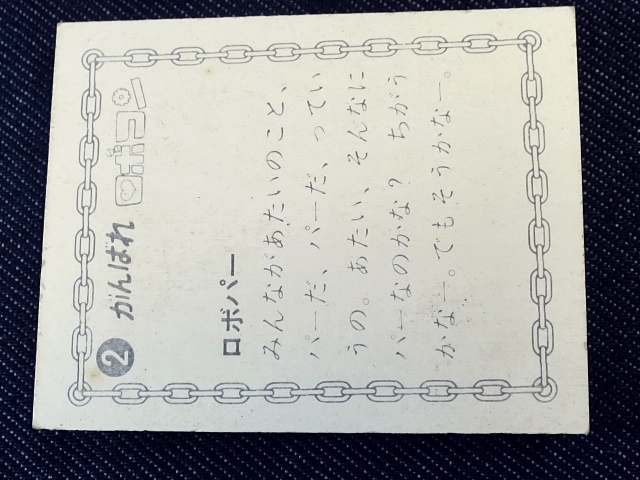 2 がんばれ ロボコン
ロボパー
みんながあたいのこと、
パーだ、パーだ、ってい
うの。あたい、そんなに
パーなのかな？ ちがう
かなー。でもそうかなー。